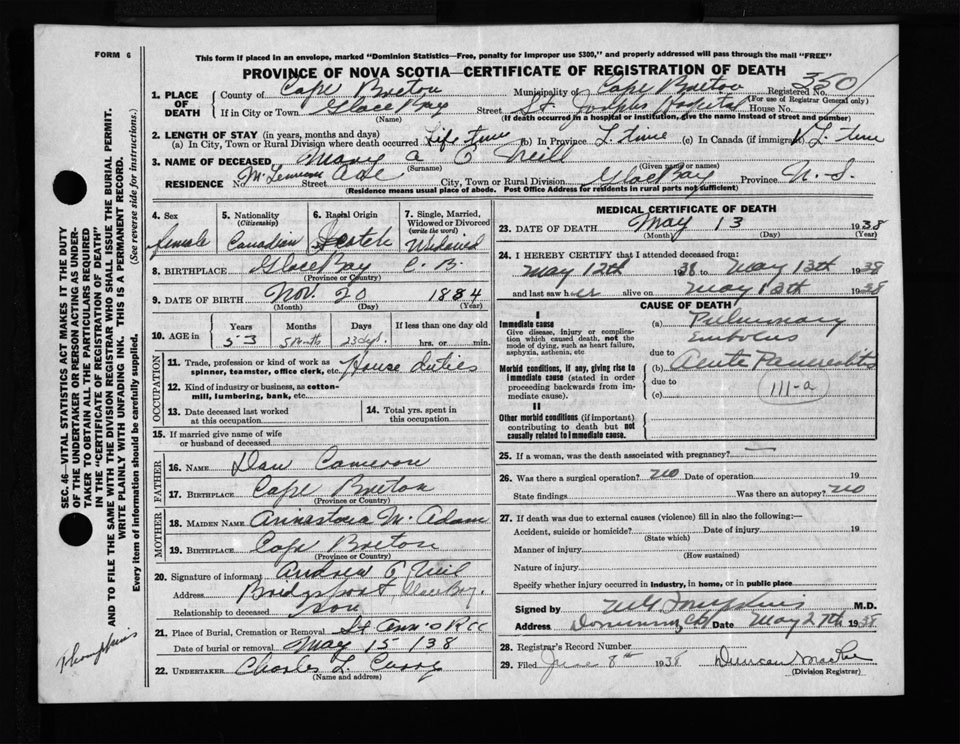 FORM 6
This form if placed in an envelope, marked "Dominion Statistics—Free, penalty for improper use $300," and properly addressed will pass through the mail "FREE"
PROVINCE OF NOVA SCOTIA—CERTIFICATE OF REGISTRATION OF DEATH
1. PLACE OF DEATH
County of Cape Breton Municipality of Cape Breton Registered No. 350
(For use of Registrar General only)
If in City or Town Glace Bay Street St. Josephs Hospital House No.
(Name) (If death occurred in a hospital or institution, give the name instead of street and number)
2. LENGTH OF STAY (in years, months and days)
(a) In City, Town or Rural Division where death occurred Life time (b) In Province L. time (c) In Canada (if immigrant) L. time
3. NAME OF DECEASED Mary A O Neill
(Surname) (Given name or names)
RESIDENCE No. Street Ave City, Town or Rural Division Glace Bay Province N. S.
(Residence means usual place of abode. Post Office Address for residents in rural parts not sufficient)
4. Sex female
5. Nationality (Citizenship) Canadian
6. Racial Origin Scotch
7. Single, Married, Widowed or Divorced (write the word) Widowed
8. BIRTHPLACE Glace Bay C. B.
(Province or Country)
9. DATE OF BIRTH Nov. 20 1884
(Month) (Day) (Year)
10. AGE in Years Months Days If less than one day old
53 5 Months 23 dys. hrs. or min.
OCCUPATION
11. Trade, profession or kind of work as spinner, teamster, office clerk, etc. House duties
12. Kind of industry or business, as cotton-mill, lumbering, bank, etc.
13. Date deceased last worked at this occupation
14. Total yrs. spent in this occupation
15. If married give name of wife or husband of deceased
FATHER
16. NAME Dan Cameron
17. BIRTHPLACE Cape Breton
(Province or Country)
MOTHER
18. MAIDEN NAME M. Adam
19. BIRTHPLACE Cape Breton
(Province or Country)
20. Signature of informant Andrew O Neil
Address Bridgeport, Glace Bay.
Relationship to deceased son
21. Place of Burial, Cremation or Removal St Ann's R C C
Date of burial or removal May 15 - 38
22. UNDERTAKER Charles L. Curry
(Name and address)
MEDICAL CERTIFICATE OF DEATH
23. DATE OF DEATH May 13 1938
(Month) (Day) (Year)
24. I HEREBY CERTIFY that I attended deceased from:
May 12th 1938 to May 13th 1938
and last saw her alive on May 13th 1938
CAUSE OF DEATH
I
Immediate cause
Give disease, injury or complication which caused death, not the mode of dying, such as heart failure, asphyxia, asthenia, etc
(a) Pulmonary Embolus
due to
Morbid conditions, if any, giving rise to immediate cause (stated in order proceeding backwards from immediate cause).
(b) Acute
due to
(c)
111-a
II
Other morbid conditions (if important) contributing to death but not causally related to immediate cause.
25. If a woman, was the death associated with pregnancy? —
26. Was there a surgical operation? no Date of operation 19
State findings Was there an autopsy? no
27. If death was due to external causes (violence) fill in also the following:—
Accident, suicide or homicide? Date of injury 19
(State which)
Manner of injury
(How sustained)
Nature of injury
Specify whether injury occurred in industry, in home, or in public place
Signed by Tompkins M.D.
Address Dominion, C.B. Date May 27th 1938
28. Registrar's Record Number
29. Filed June 8th 1938 Duncan
(Division Registrar)
SEC. 46—VITAL STATISTICS ACT MAKES IT THE DUTY
OF THE UNDERTAKER OR PERSON ACTING AS UNDERTAKER
TO OBTAIN ALL THE PARTICULARS REQUIRED
IN THE "CERTIFICATE OF REGISTRATION OF DEATH"
AND TO FILE THE SAME WITH THE DIVISION REGISTRAR WHO SHALL ISSUE THE BURIAL PERMIT.
WRITE PLAINLY WITH UNFADING INK. THIS IS A PERMANENT RECORD.
Every item of information should be carefully supplied. (See reverse side for instructions.)
Thompkins